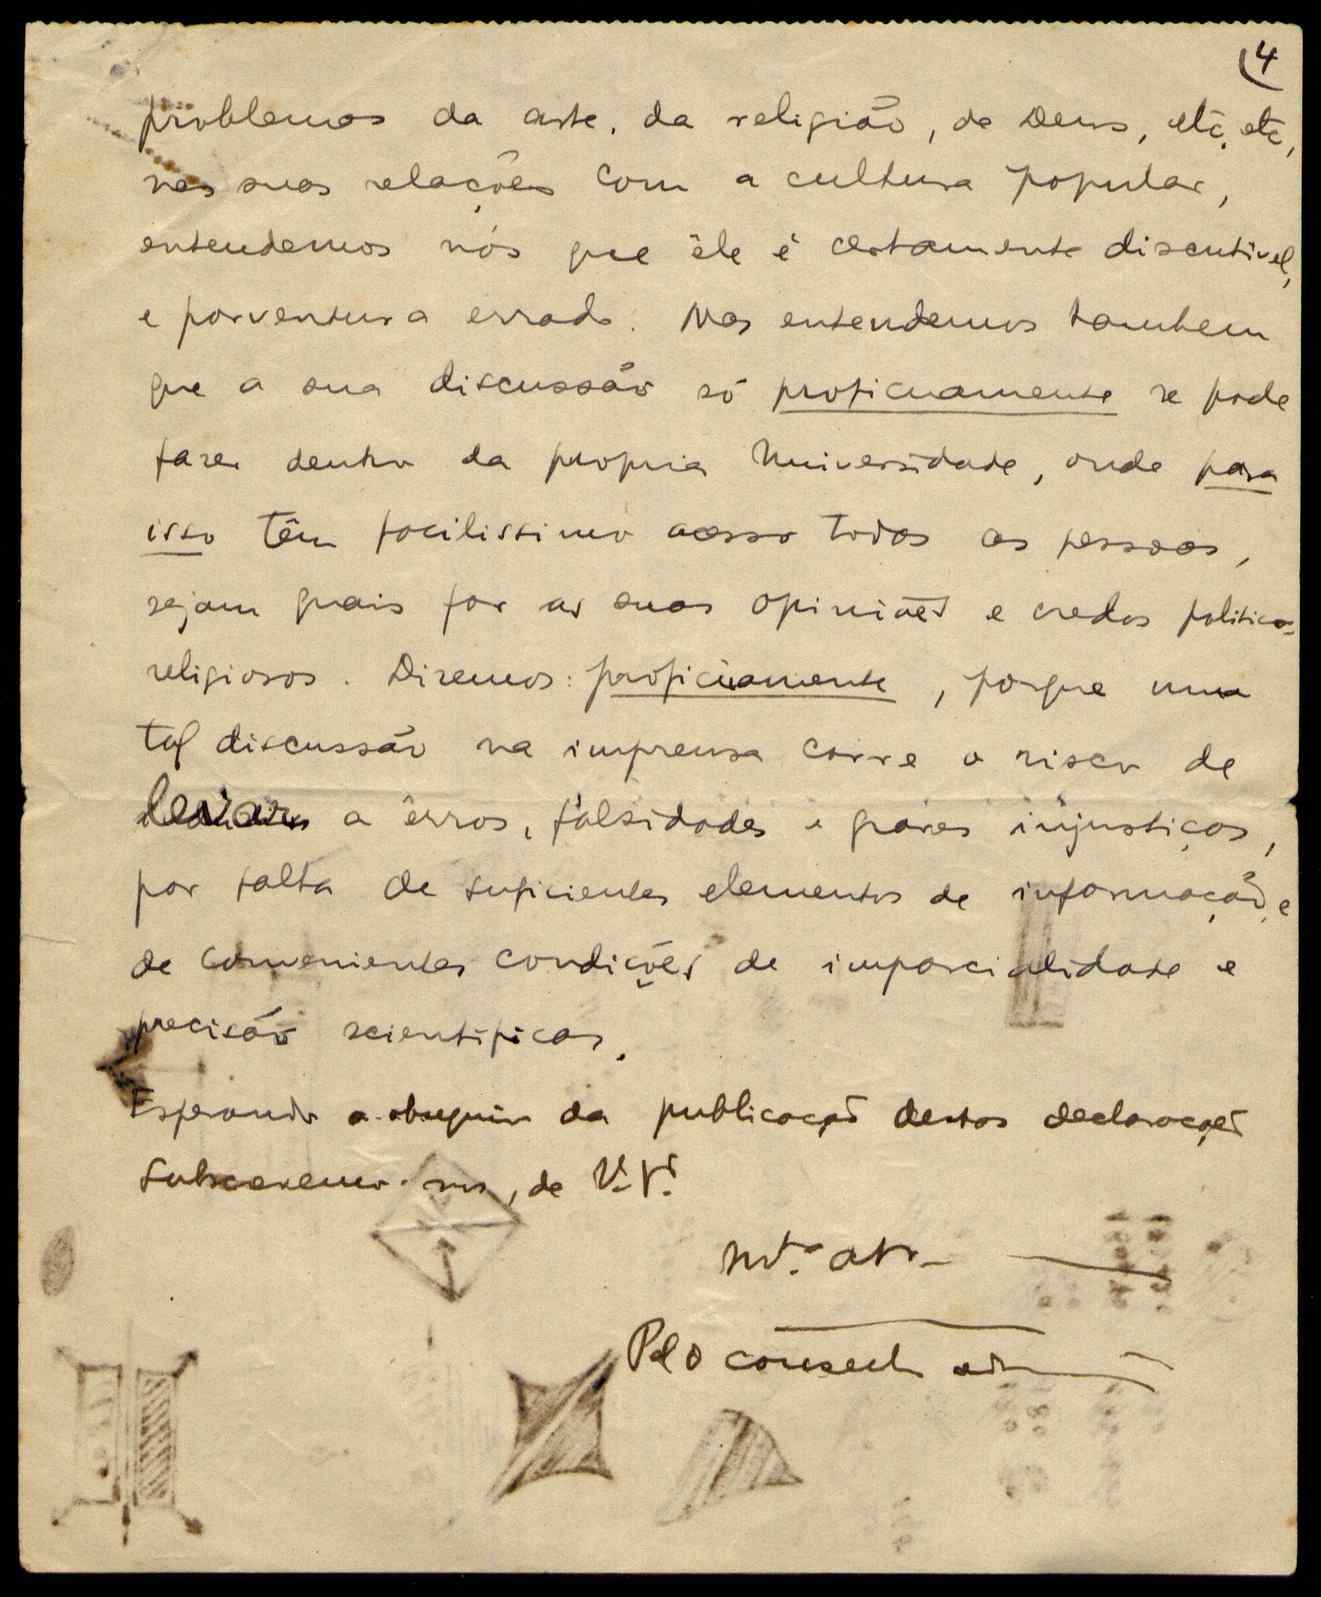 4
problemas da arte, da religião, de Deus, etc, etc,
nas suas relações com a cultura popular,
entendemos nós que êle é certamente discutivel,
e porventura errado. Mas entendemos tambem
que a sua discussão só proficuamente se pode
fazer dentro da propria Universidade, onde para
isso têm facilissimo acesso todas as pessoas,
sejam quais for as suas opiniões e credos politico-
religiosos. Diremos: proficuamente, porque uma
tal discussão na imprensa corre o risco de
levar a êrros, falsidades e graves injustiças,
por falta de suficientes elementos de informação, e
de convenientes condições de imparcialidade e
precisão scientificas.
Esperando o obsequio da publicação destas declarações
subscrevemo-nos, de V. V.
Mt.º at.
Pelo conselho